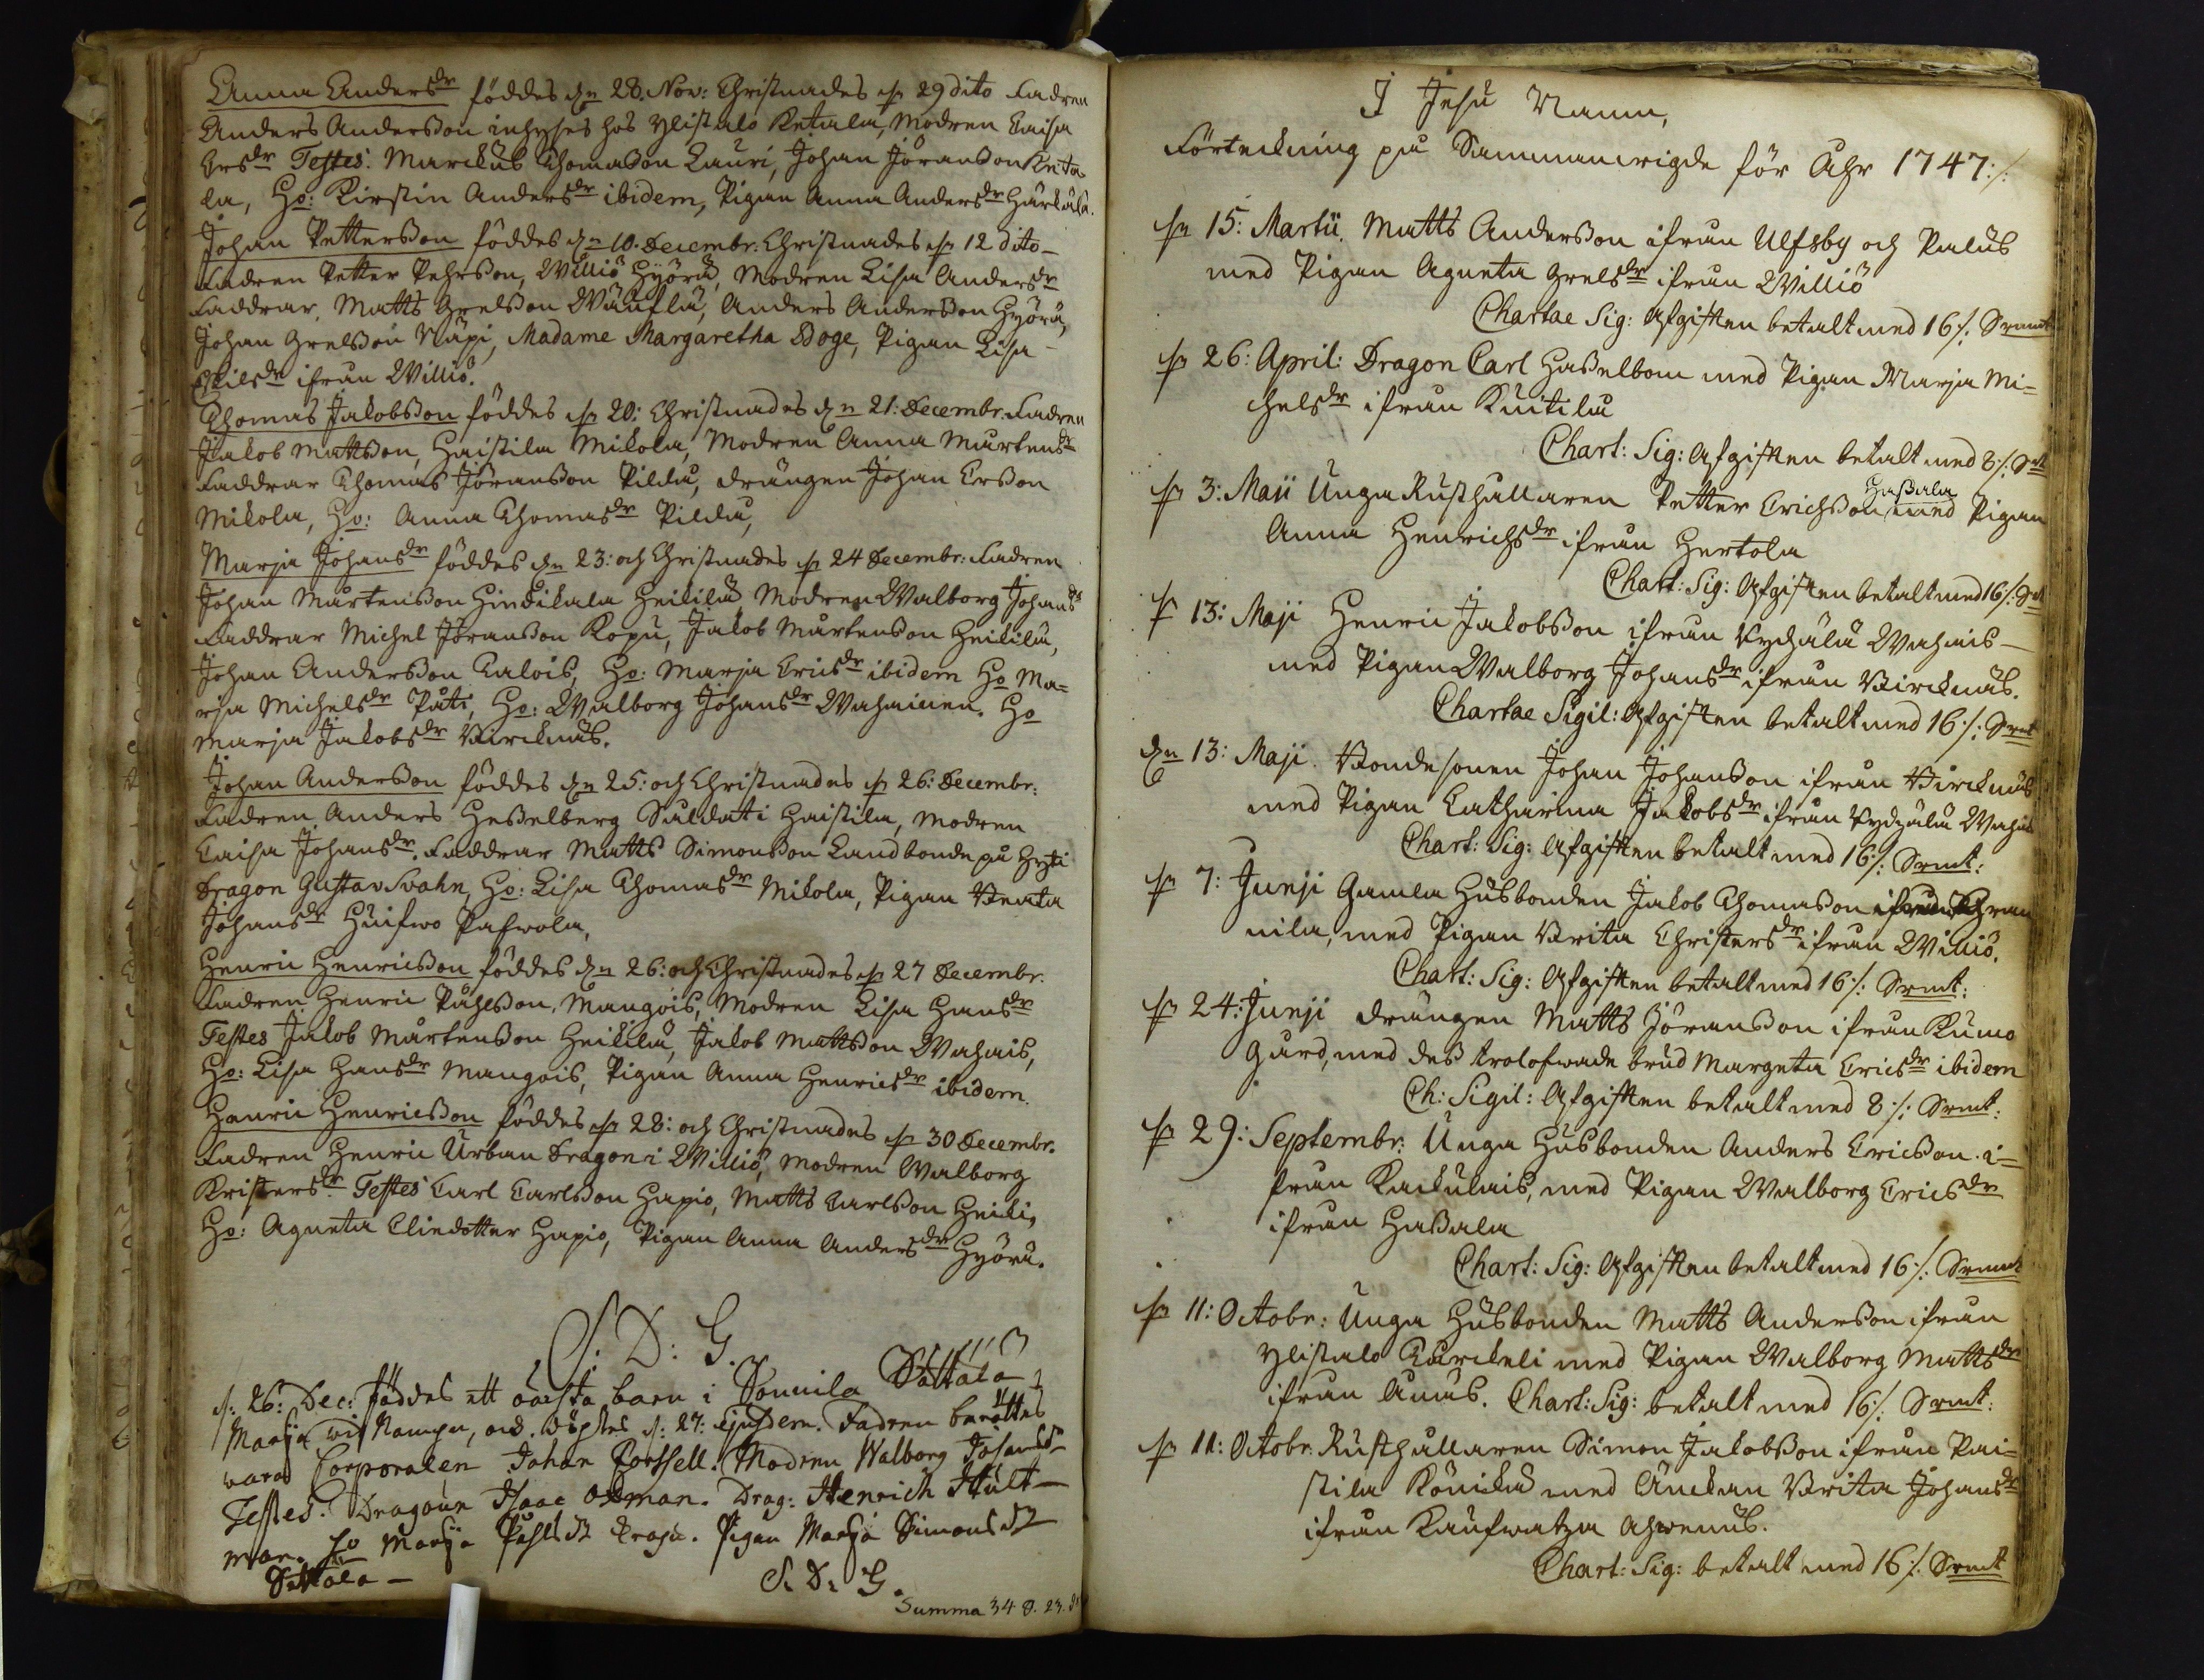 Anna Andersdr föddes dn 28. Nov: Christnades dn 29 dito Fadren
Anders Andersson inhyses hos Ylistalo Ketala, Modren Caisa
Grsdr Testes: Marckus Thomasson Lauri, Johan Jöransson Keta-
la, Ho: Kirstin Andersdr ibidem, Pigan Anna Andersdr Härkälä.
Johan Pettersson föddes dn 10. Decembr: Christnades dn 12 dito
Fadren Petter Pehrsson, Williö Hyörä, Modren Lisa Andersdr
Faddrar, Matts Grelsson Wäuflä, Anders Andersson Hyörä,
Johan Grelsson Näpi, Madame Margaretha Boge, Pigan Lisa
Eskilsdr ifrån Williö.
Thomas Jakobsson föddes dn 20: Christnades dn 21: Decembr. Fadren
Jakob Mattsson, Haistila Mikola, Modren Anna Mårtensdr
Faddrar Thomas Jöransson Pildu, drängen Johan Ersson
Mikola, Ho: Anna Thomasdr Pildu,
Marja Johansdr föddes dn 23: och Christnades dn 24 Decembr: Fadren
Johan Mårtensson Hindikala Heikilä Modren Walborg Johansdr
Faddrar Michel Jöransson Kopu, Jakob Mårtensson Heikilä,
Johan Andersson Talois, Ho: Marja Ericsdr ibidem Ho Ma=
rja Michelsdr Päti, Ho: Walborg Johansdr Wahainen. Ho
Marja Jakobsdr Birknäs.
Johan Andersson föddes dn 25: och Christnades dn 26: Decembr:
Fadren Anders Hesselberg Suldati Haistila, Modren
Caisa Johansdr. Faddrar Matts Simonsson Landbonde på Hyti
Dragon Gustav Svahn, Ho: Lisa Thomasdr Mikola, Pigan Beata
Johansdr Huifwo Pafwola,
Henric Henricsson föddes dn 26: och Christnades dn 27 Decembr.
Fadren Henric Påhlsson, Mangois, Modren Lisa Hansdr
Testes Jakob Mårtensson Heikilä, Jakob Mattsson Wahais,
Ho: Lisa Hansdr Mangois, Pigan Anna Henricsdr ibidem.
Henric Henricsson föddes dn 28: och Christnades dn 30 Decembr.
Fadren Henric Urban Dragon i Williö, Modren Walborg
Kristersdr. Testes Carl Carlsson Hapio, Matts Carlsson Heiki,
Ho: Agneta Eliedotter Hapio, Pigan Anna Andersdr Hyörä.
S: D: G.
d: 26: Dec: föddes ett oäckta barn i Sonnila Sättälä
Marja wid Nampn, och döptes d: 27: ejusdem. Fadren berättes
wara Corporalen Johan Forssell. Modren Walborg Johansdr
Testes: Dragoun Isaac Öhman. Drag: Henrich Hult-
man. Ho Marja Påhlsdr Krapu. Pigan Marja Simonsdr
Sättälä
S. D: G.
Summa 34 D. 23.
I Jesu Namn,
Förteckning på Sammanwigde för Åhr 1747:/:
dn 15: Martii. Matts Andersson ifrån Ulfsby och Palus
med Pigan Agneta Grelsdr ifrån Williö
Chartae Sig: Afgiften betalt med 16/: Srmt
dn 26: April: Dragon Carl Hasselbom med Pigan Marja Mi=
chelsdr ifrån Kuitila
Chart: Sig: Afgiften betalt med 8:/: Srmt
dn 3: Maii Unga Rusthållaren Petter Erichsson Hassala med Pigan
Anna Henrichsdr ifrån Hertola
Chart: Sig: Afgiften betalt med 16/: Srmt
dn 13: Maji Henric Jakobsson ifrån Kyhälä Wahais
med Pigan Walborg Johansdr ifrån Birknäs.
Chartae Sigil: Afgiften betalt med 16:/: Srmt
dn 13: Maji. Bondesonen Johan Johansson ifrån Birknäs
med Pigan Catharina Jakobsdr ifrån Kyhälä Wahais
Chart: Sig: Afgiften betalt med 16:/: Srmt:
dn 7: Junji Gamla Husbonden Jakob Thomasson ifrån Fran
nila, med Pigan Brita Christersdr ifrån Williö.
Chart: Sig: Afgiften betalt med 16:/: Srmt:
dn 24: Junji drängen Matts Jöransson ifrån Kumo
gård, med dess trolofwade brud Margeta Ericsdr ibidem
Ch: Sigil: Afgiften betalt med 8:/: Srmt:
dn 29: Septembr: Unga Husbonden Anders Ericsson i=
från Kaukulais, med Pigan Walborg Ericsdr
ifrån Hassala
Chart: Sig: Afgiften betalt med 16:/: Srmt
dn 11: Octobr: Unga Husbonden Matts Andersson ifrån
Ylistalo Kurckeli med Pigan Walborg Mattsdr
ifrån Anäs. Chart: Sig: betalt med 16/: Srmt:
dn 11: Octobr: Rusthållaren Simon Jakobsson ifrån Pai=
stila Könickä med Änckan Brita Johansdr
ifrån Kaufwatza Ahwenus.
Chart: Sig: betalt med 16:/: Srmt